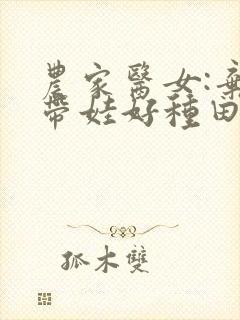 農家醫女:棄
帶娃好種田
孤木雙